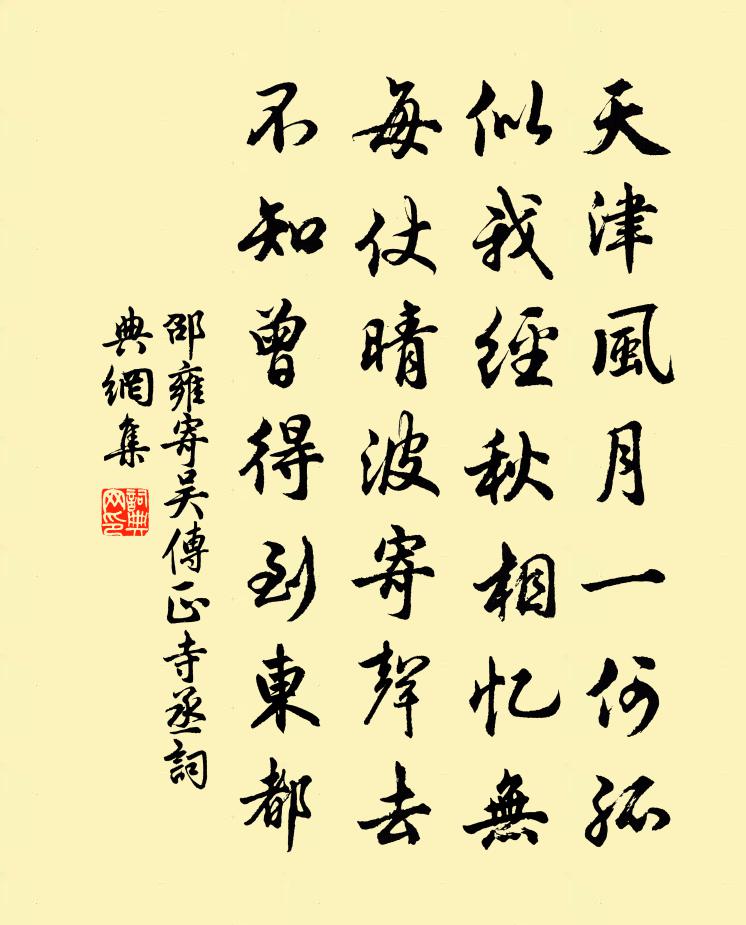 天津風月一何孤
似我經秋相忆無
每仗晴波寄聲去
不知曾得到東都
邵雍寄吴傳正寺丞詞
典網集
詞典網印